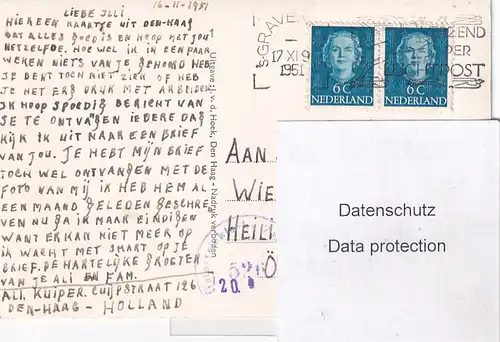 16-11-1951
LIEBE ILLI
HIER EEN KAARTJE UIT DEN-HAAG
DAT ALLES GOED IS EN HOOP MET JOU
HETZELFDE. HOE WEL IK IN EEN PAAR
WEKEN NIETS VAN JE GEHOORD HEB
JE BENT TOCH NIET ZIEK OF HEB
JE HET ERG DRUK MET ARBEIDEN
IK HOOP SPOEDIG BERICHT VAN
JE TE ONTVANGEN IEDERE DAG
KIJK IK UIT NAAR EEN BRIEF
VAN JOU. JE HEBT MIJN BRIEF
TOCH WEL ONTVANGEN MET DE
FOTO VAN MIJ IK HEB HEM AL
EEN MAAND GELEDEN GESCHRE
VEN NU GA IK MAAR EINDIGEN
WANT ER KAN NIET MEER OP
IK WACHT MET SMART OP JE
BRIEF. DE HARTELIJKE GROETEN
VAN JE ALI EN FAM.
ALI. KUIPER. CUIJPSTRAAT 126
DEN-HAAG - HOLLAND
Uitgave: J. v. d. Hoek, Den Haag - Nadruk verboden
'S-GRAVEN
17 XI 9
1951
ZEND
PER
LUCHTPOST
6C
NEDERLAND
6C
NEDERLAND
AAN
WIE
HEILI
Ö
20.
Datenschutz
Data protection